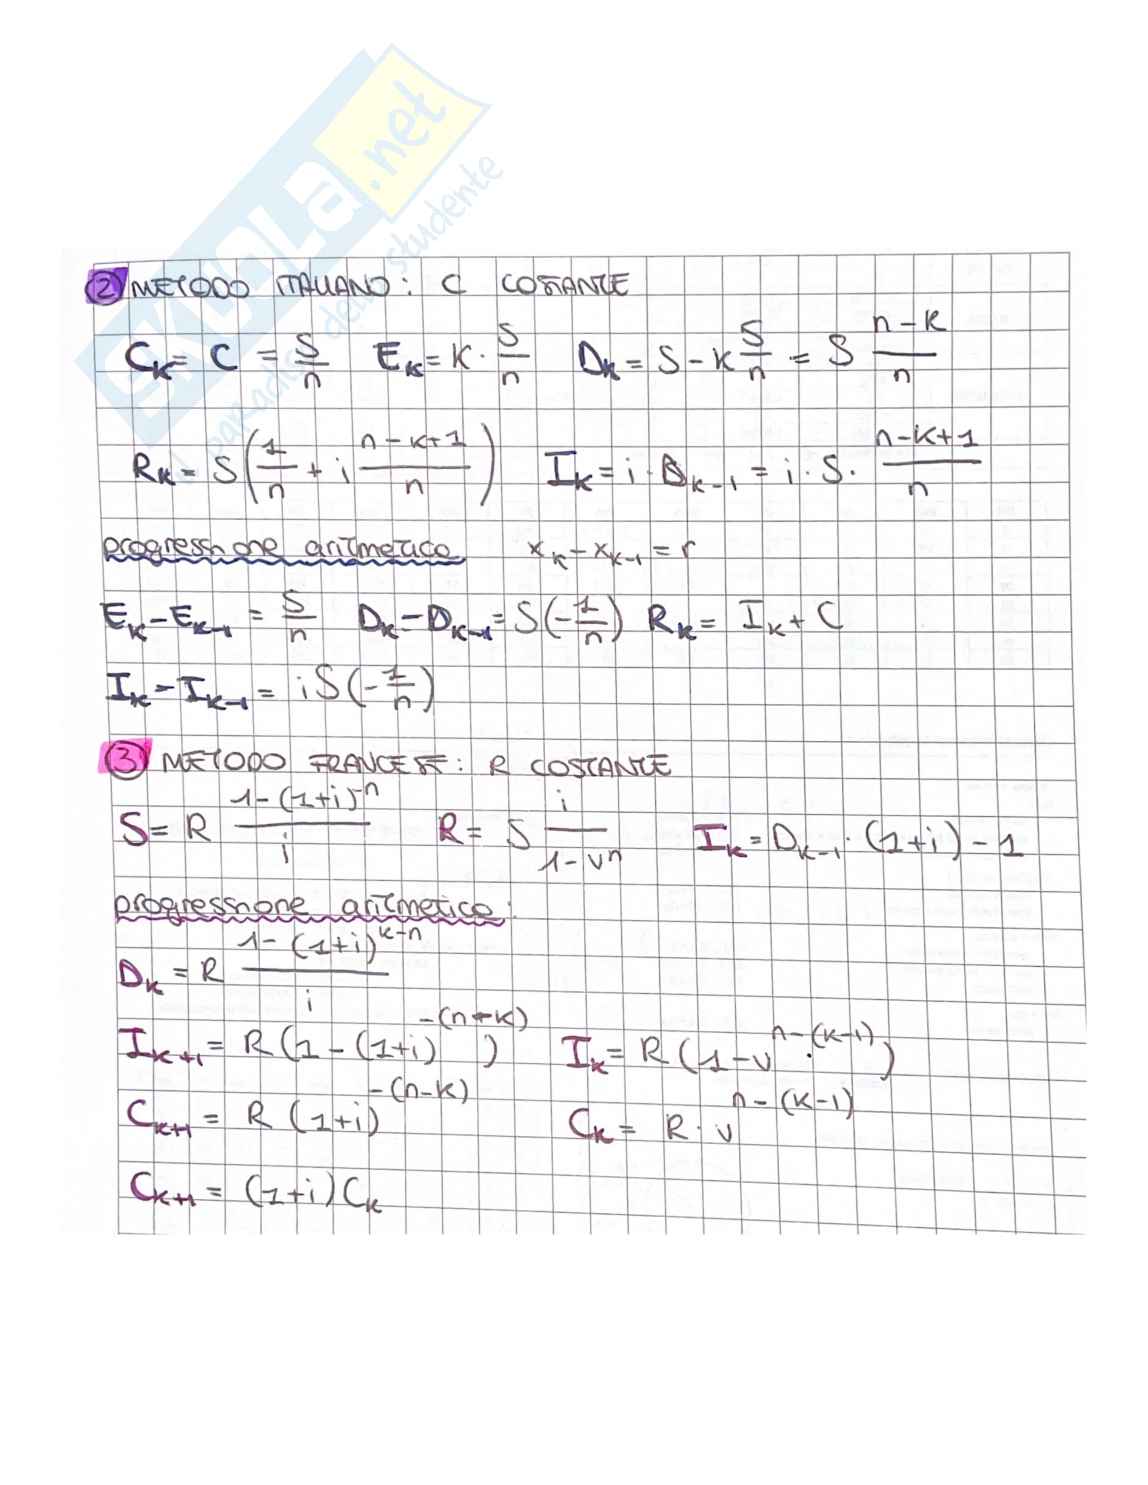 SKUOLA.net
paradiso dello studente
② METODO ITALIANO: C COSTANTE
C_k = C = S/n   E_k = k · S/n   D_k = S - k S/n = S (n-k)/n
R_k = S(1/n + i (n-k+1)/n)   I_k = i · D_{k-1} = i · S · (n-k+1)/n
progressione aritmetica   x_k - x_{k-1} = r
E_k - E_{k-1} = S/n   D_k - D_{k-1} = S(-1/n)   R_k = I_k + C
I_k - I_{k-1} = iS(-1/n)
③ METODO FRANCESE: R COSTANTE
S = R (1-(1+i)^{-n})/i   R = S i/(1-v^n)   I_k = D_{k-1} · (1+i) - 1
progressione aritmetica:
D_k = R (1-(1+i)^{k-n})/i
I_{k+1} = R(1-(1+i)^{-(n-k)})   I_k = R(1-v^{n-(k-1)})
C_{k+1} = R(1+i)^{-(n-k)}   C_k = R · v^{n-(k-1)}
C_{k+1} = (1+i)C_k